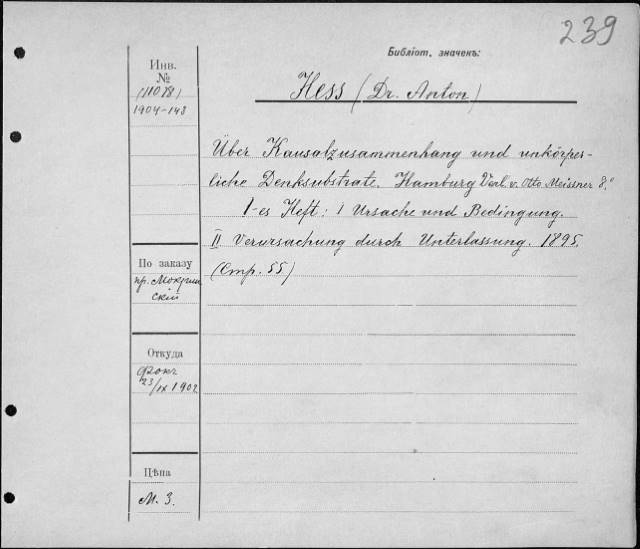 239
Библіот. значекъ:
Инв.
№
(11078)
1904-148
Hess (Dr. Anton)
Über Kausalzusammenhang und unkörper-
liche Denksubstrate. Hamburg Verl. v. Otto Meissner 8.°
1-es Heft: I Ursache und Bedingung.
II Verursachung durch Unterlassung. 1895.
(Стр. 55)
По заказу
пр. Мокрин
скій
Откуда
Фокъ
23/IX 1902
Цѣна
М. 3.